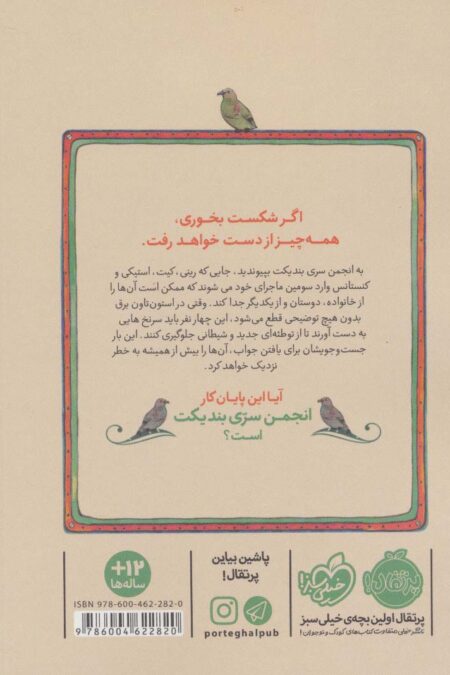 اگر شکست بخوری،
همه‌چیز از دست خواهد رفت.
به انجمن سری بندیکت بپیوندید، جایی که رینی، کیت، استیکی و
کنستانس وارد سومین ماجرای خود می شوند که ممکن است آن‌ها را
از خانواده، دوستان و از یکدیگر جدا کند. وقتی در استون‌تاون برق
بدون هیچ توضیحی قطع می‌شود، این چهار نفر باید سرنخ هایی
به دست آورند تا از توطئه‌ای جدید و شیطانی جلوگیری کنند. این بار
جست‌وجویشان برای یافتن جواب، آن‌ها را بیش از همیشه به خطر
نزدیک خواهد کرد.
آیا این پایان کار
انجمن سرّی بندیکت
است؟
پرتقال!
خیلی سبز!
پرتقال اولین بچه‌ی خیلی سبز
ناشر خیلی متفاوت کتاب‌های کودک و نوجوان!
پاشین بیاین
پرتقال!
porteghalpub
+۱۲
ساله‌ها
ISBN 978-600-462-282-0
9 786004 622820